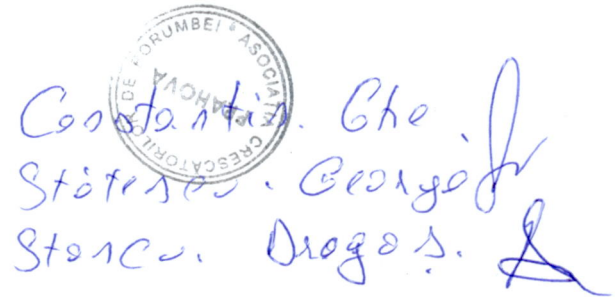 ASOCIAȚIA CRESCATORILOR DE PORUMBEI
PRAHOVA
Constantin. Ghe.
Stătescu. George
Stancu. Dragoș.